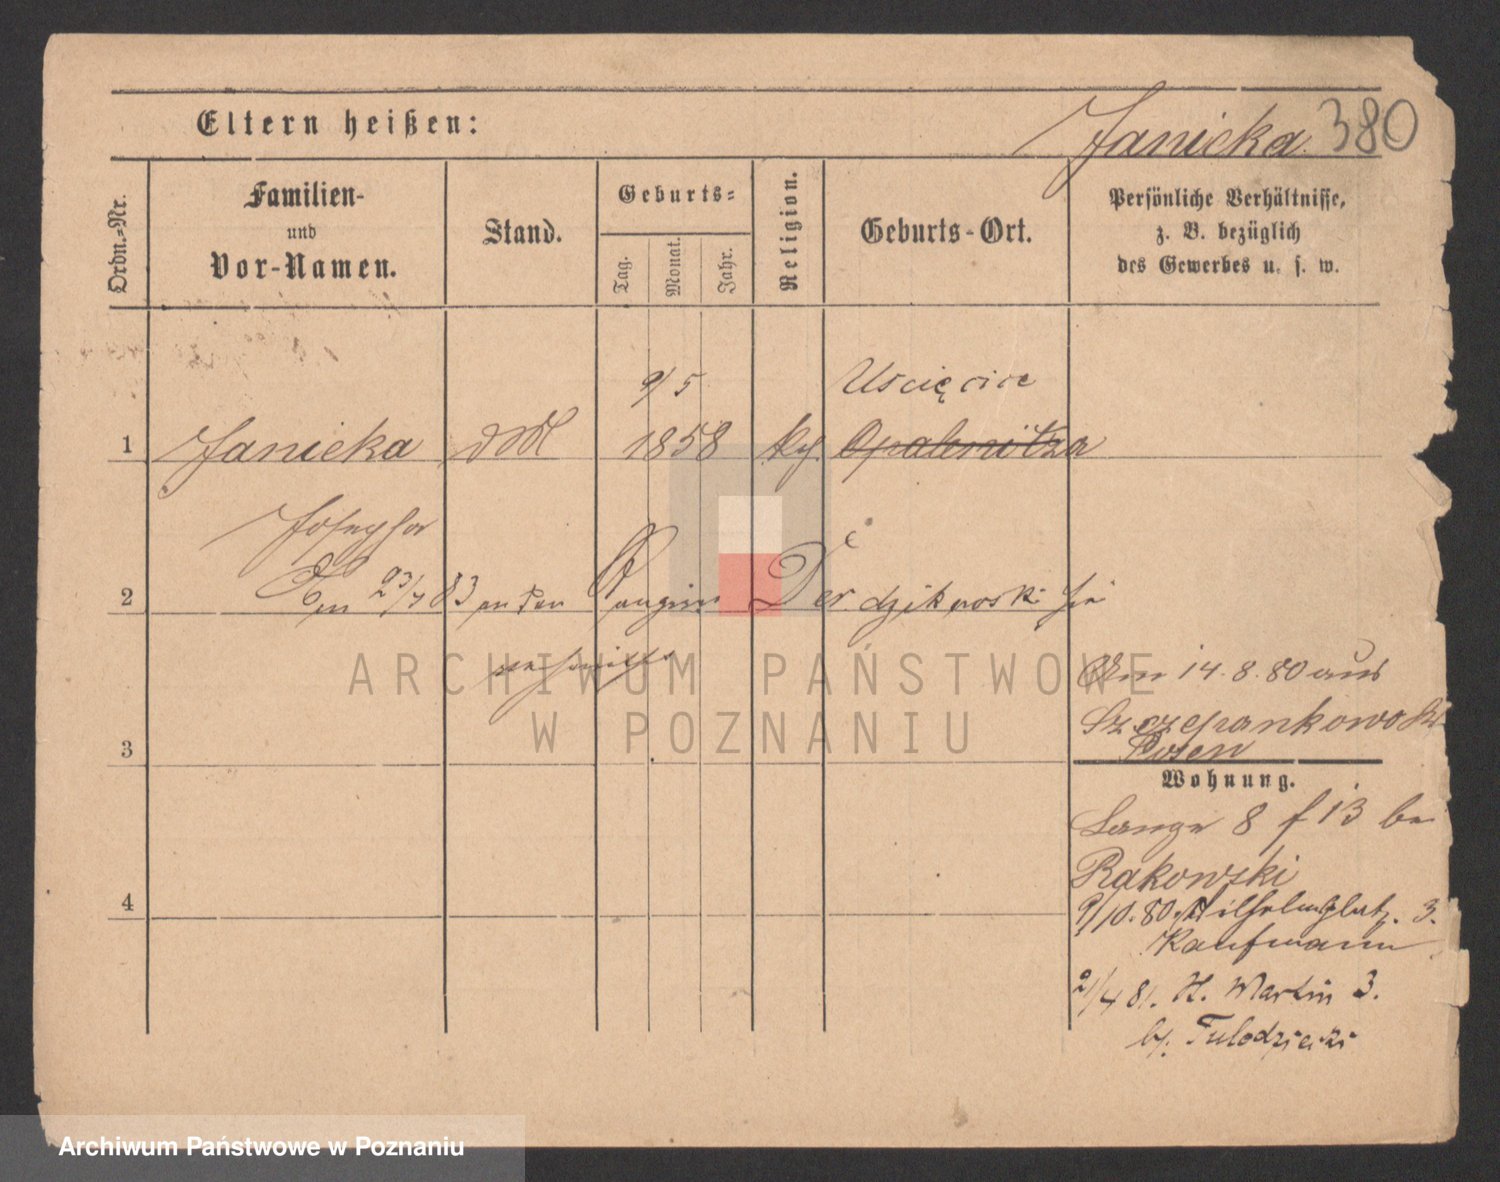 Eltern heißen:
Janicka 380
Ordn.=Nr.
Familien-
und
Vor-Namen.
Stand.
Geburts=
Tag.
Monat.
Jahr.
Religion.
Geburts-Ort.
Persönliche Verhältnisse,
z. B. bezüglich
des Gewerbes u. s. w.
9/5 Uscięcice
1 Janicka 1858 Opalenitza
Josepha
2 Am 23/7 83 an den Derdzikowski
3
Am 14.8.80 aus
Szczepankowo Kr
Posen
Wohnung.
Lange 8 f 13 bei
Rakowski
4
9/10.80. Wilhelmsplatz. 3.
Kaufmann
21/4 81. St. Martin 3.
by. Tulodziecki
ARCHIWUM PAŃSTWOWE
W POZNANIU
Archiwum Państwowe w Poznaniu